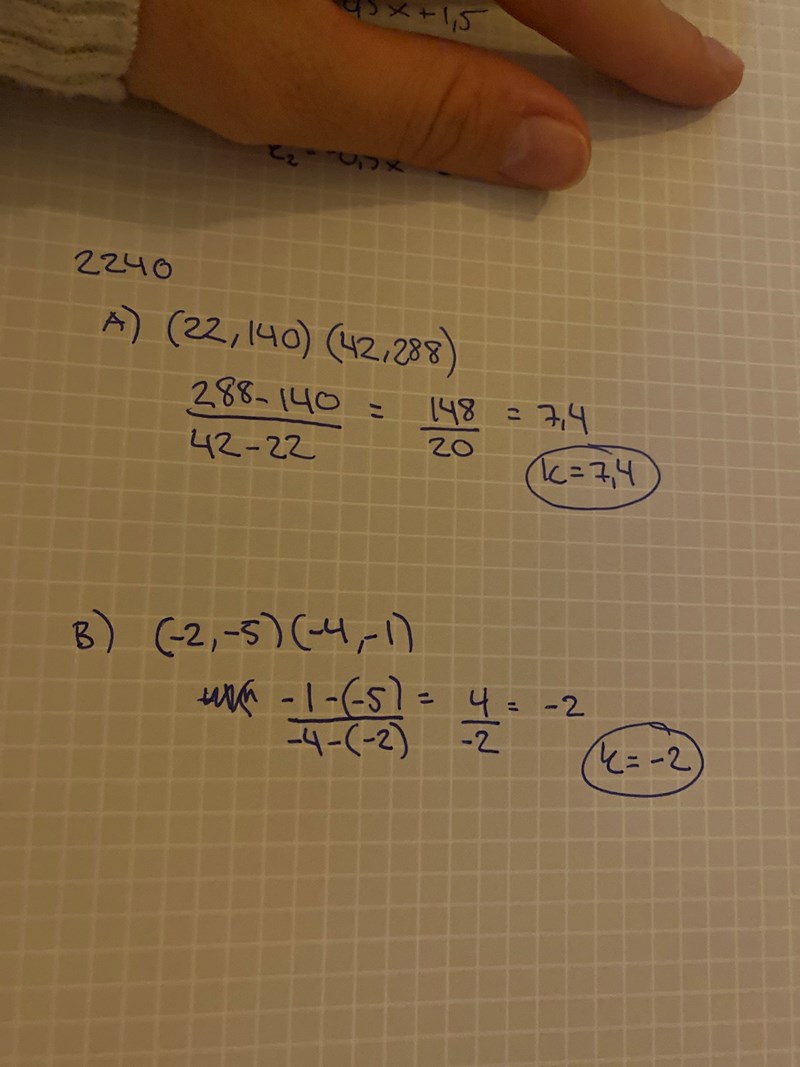 45x+1,5
-0,5x
2240
A) (22,140) (42,288)
288-140 / 42-22 = 148 / 20 = 7,4
k=7,4
B) (-2,-5) (-4,-1)
-1-(-5) / -4-(-2) = 4 / -2 = -2
k=-2